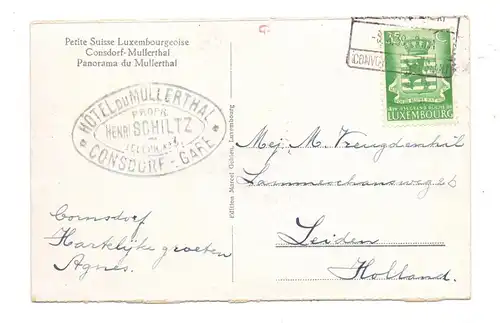 Petite Suisse Luxembourgeoise
Consdorf-Mullerthal
Panorama du Mullerthal
HOTEL DU MULLERTHAL
PROPR.
HENRI SCHILTZ
CONSDORF-GARE
Edition Marcel Gehlen, Luxembourg
CONVOY
LUXEMBOURG
Mej. M. Vreugdenhil
Lammenschansweg 26
Leiden
Holland.
Cornsdorf
Hartelijke groeten
Agnes.